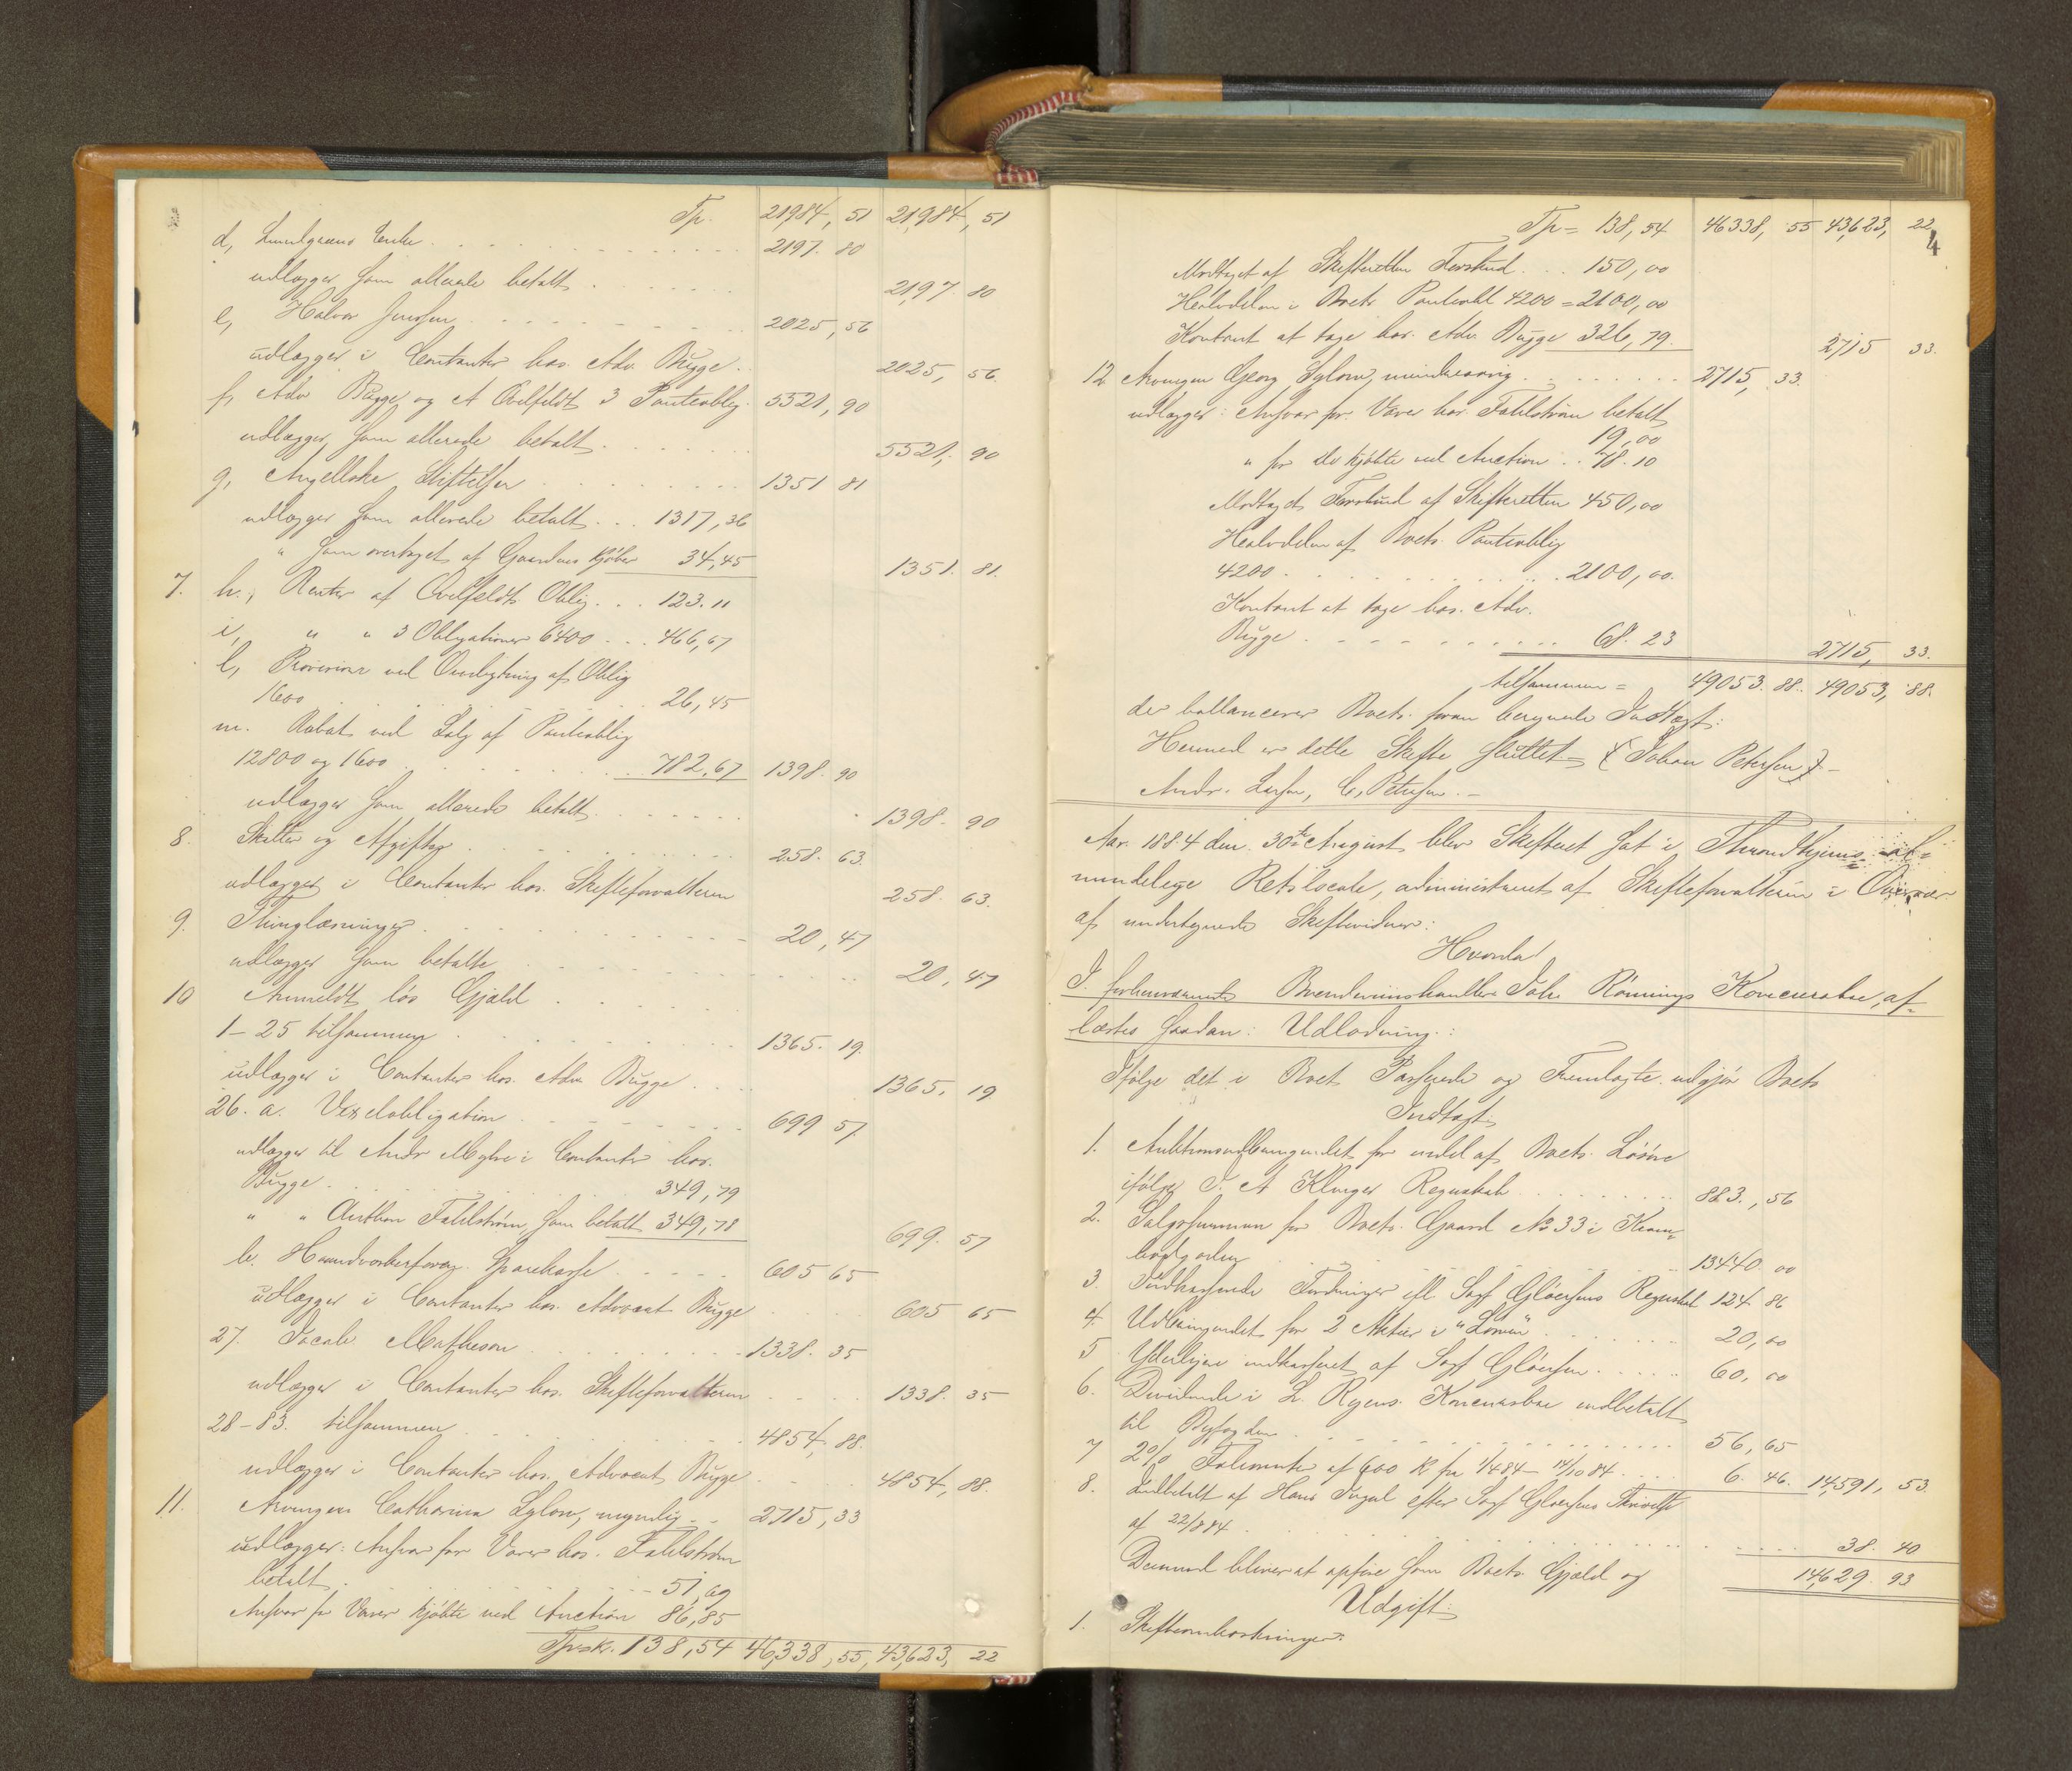 Tp. 21984, 51 21,984, 51
d, Lundgreens Enke 2197. 80
udlægges som allerede betalt 2197. 80
e, Halvor Jenssen 2025, 56
udlægges i Contanter hos Adv. Bugge 2025, 56.
f, Adv Bugge og A Ovelfeldt 3 Panteoblig. 5521, 90
udlægges som allerede betalt 5521, 90
g, Angellske Stiftelser 1351 81
udlægges som allerede betalt 1317, 36
" som overtaget af Gaardens Kjøber 34,45 1351. 81.
7. h., Renter af Ovelfeldts Oblig. 123. 11
i, " " 3 Obligationer 6400 466,67
l, Provision ved Ombytning af Oblig
1600 26,45
m. Rabat ved Salg af Panteoblig
12800 og 1600 782,67 1398. 90
udlægges som allerede betalt 1398. 90
8. Skatter og Afgifter 258. 63.
udlægges i Contanter hos Skifteforvalteren 258. 63.
9. Thinglæsninger 20, 47
udlægges som betalte 20, 47
10 Anmeldt løs Gjæld
1–25 tilsammen 1365. 19.
udlægges i Contanter hos Adv Bugge 1365. 19
26. a. Vexelobligation 699 57.
udlægges til Andr Myhre i Contanter hos
Bugge 349,79
" " Anthon Fahlstrøm som betalt 349,78 699. 57
b. Haandverkerforen. Sparekasse 605 65
udlægges i Contanter hos Advocat Bugge 605 65
27. Jacob Matheson 1338. 35
udlægges i Contanter hos Skifteforvalteren 1338. 35
28–83. tilsammen 4854, 88.
udlægges i Contanter hos Advocat Bugge 4854, 88.
11. Arvingen Catharina Sylow, myndig 2715, 33
udlægges: Ansvar for Varer hos Fahlstrøm
betalt 51,69
Ansvar for Varer kjøbte ved Auction 86,85
Tpskr. 138,54 46,338, 55, 43,623, 22
Tp = 138,54 46338, 55 43,623, 22
4
Modtaget af Skifteretten Forskud 150,00
Halvdelen i Boets Panteobl 4200 = 2100,00
Kontant at tage hos Adv. Bugge 326,79. 2715 33.
12 Arvingen Georg Sylow, mindreaarig 2715, 33.
udlægges: Ansvar for Varer hos Fahlstrøm betalt
19,00
" for do kjøbte ved Auction 78.10
Modtagets Forskud af Skifteretten 450,00
Halvdelen af Boets Panteoblig
4200 2100,00.
Kontant at tage hos Adv.
Bugge 68. 23 2715, 33.
tilsammen = 49053. 88. 49053, 88.
der ballancerer Boets foran beregnede Indtægt:
Hermed er dette Skifte sluttet – ( Johan Petersen ) –
Andr. Larsen, C, Petersen. –
Aar 1884 den 30te August blev Skifteret sat i Throndhjems al-
mindelige Retslocale, administreret af Skifteforvalteren i Overvær
af undertegnede Skiftevidner:
Hvorda
I forhenværende Brændevinshandler Johs Rønnings Koncursbo, af-
læstes saadan: Udlodning:
Ifølge det i Boet Passerede og Fremlagte udgjør Boets
Indtægt:
1. Auktionsudbringendet for endel af Boets Løsøre
ifølge J. A Klinges Regnskab 883., 56
2. Salgssummen for Boets Gaard No 33 i Kram-
bodgaden 13440. 00
3. Indkasserede Fordringer ifl. Sagf Gløersens Regnskab 124 86
4. Udbringendet for 2 Aktier i " 20,00
5 Yderligere indkasseret af Sagf Gløersen 60, 00
6. Dividende i L. Ryens Koncursbo indbetalt
til Byfogden 56, 65
7 2% Foliorente af 600 Kr fra 1/484 – 14/10 84 6. 46. 14,591, 53.
8. Indbetalt af Hans efter Sagf Gloersens Skrivelse
af 22/884 38. 40
14,629. 93
Dermed bliver at opføre som Boets Gjæld og
Udgift:
1. Skifteomkostninger: